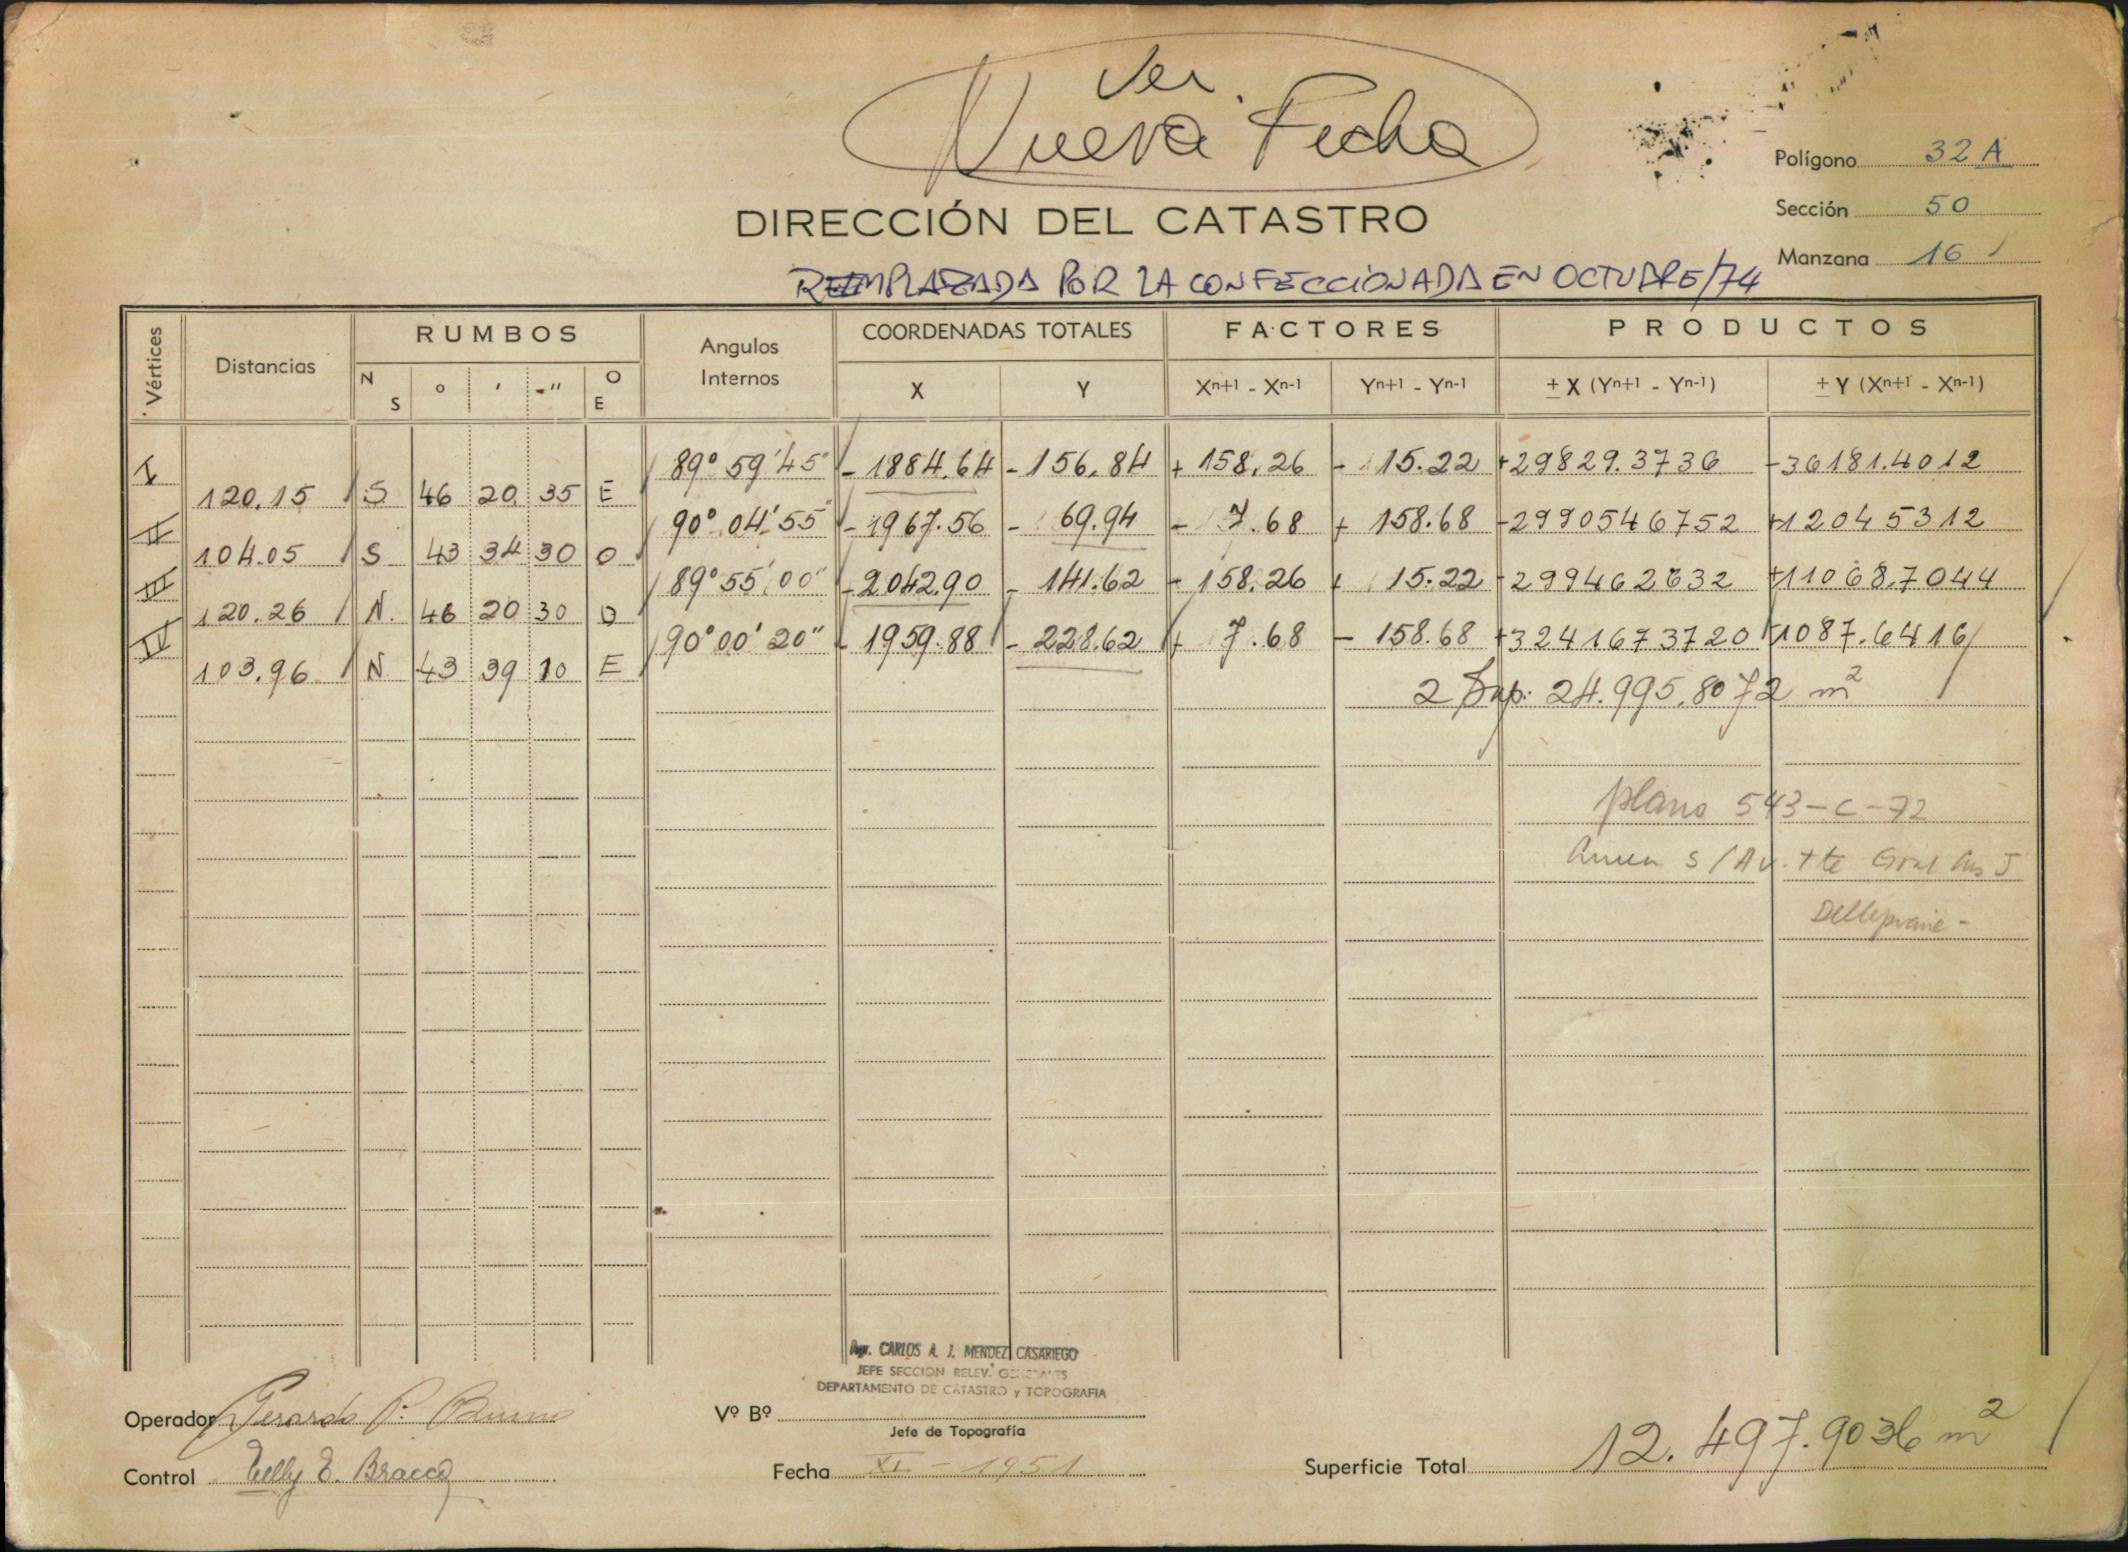 Ver
Nueva Fecha
Polígono 32 A
Sección 50
Manzana 16
DIRECCIÓN DEL CATASTRO
REEMPLAZADA POR LA CONFECCIONADA EN OCTUBRE/74
Vértices Distancias RUMBOS Angulos Internos COORDENADAS TOTALES FACTORES PRODUCTOS
N S o ' " O E X Y Xn+1 - Xn-1 Yn+1 - Yn-1 ± X (Yn+1 - Yn-1) ± Y (Xn+1 - Xn-1)
I 89° 59' 45" - 1884.64 - 156.84 + 158.26 - 15.22 + 29829.3736 - 36181.4012
120.15 S 46 20 35 E
II 90° 04' 55" - 1967.56 - 69.94 - 7.68 + 158.68 - 2990546752 + 12045312
104.05 S 43 34 30 O
III 89° 55' 00" - 2042.90 - 141.62 - 158.26 + 15.22 - 299462632 + 11068.7044
120.26 N. 46 20 30 O
IV 90° 00' 20" - 1959.88 - 228.62 + 7.68 - 158.68 + 3241673720 1087.6416
103.96 N 43 39 10 E
2 Sup: 24.995,8072 m²
plano 543-C-72
s/Av. tte Gral Luis J
Dellepiane -
CARLOS A. J. MENDEZ CASARIEGO
JEFE SECCION RELEV. GENERALES
DEPARTAMENTO DE CATASTRO y TOPOGRAFIA
Operador Gerardo P. Bruno
Vº Bº
Jefe de Topografía
Control E. Bracco
Fecha XI - 1951
Superficie Total 12.497.9036 m²